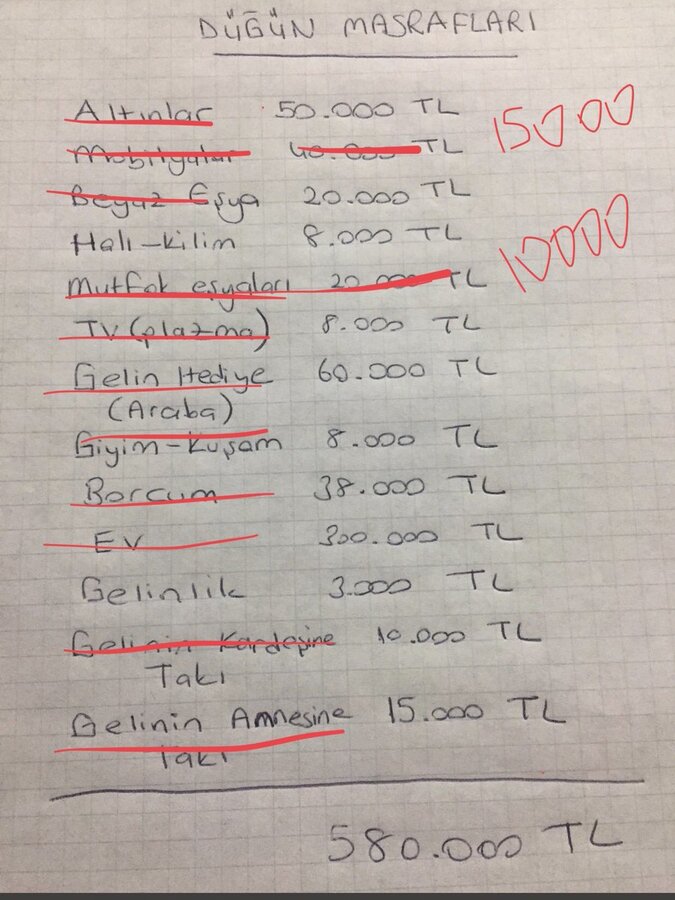 DÜĞÜN MASRAFLARI
Altınlar 50.000 TL
15000
Mobilyalar 40.000 TL
Beyaz Eşya 20.000 TL
Halı-kilim 8.000 TL
10000
Mutfak eşyaları 20.000 TL
TV (plazma) 8.000 TL
Gelin Hediye 60.000 TL
(Araba)
Giyim-Kuşam 8.000 TL
Borcum 38.000 TL
EV 300.000 TL
Gelinlik 3.000 TL
Gelinin Kardeşine 10.000 TL
Takı
Gelinin Annesine 15.000 TL
Takı
580.000 TL